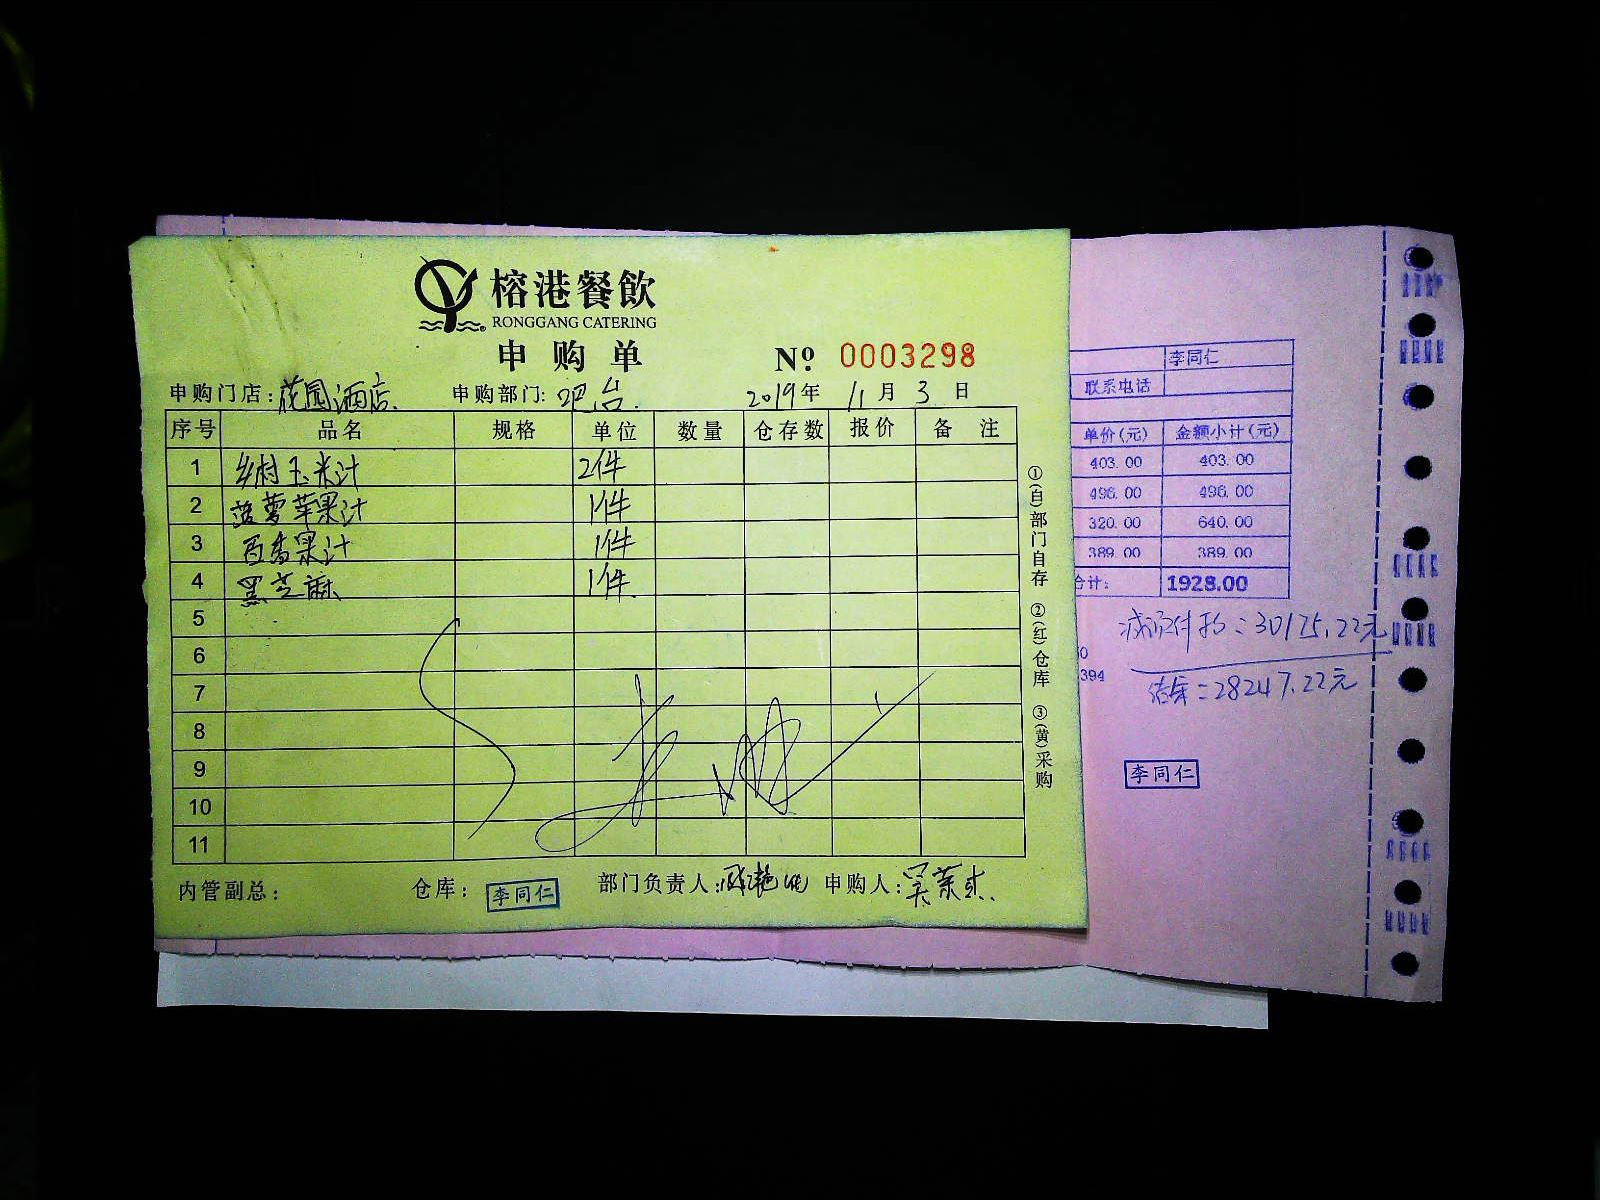 榕港餐飲
RONGGANG CATERING
申购单 Nº 0003298
申购门店:花园酒店. 申购部门:吧台. 2019年 11月 3日
序号 品名 规格 单位 数量 仓存数 报价 备注
1 乡村玉米汁 2件
2 菠萝苹果汁 1件
3 百香果汁 1件
4 黑芝麻 1件
5
6
7
8
9
10
11
内管副总: 仓库: 李同仁 部门负责人: 申购人:
①(白)部门自存 ②(红)仓库 ③(黄)采购
李同仁
联系电话
单价(元) 金额小计(元)
403.00 403.00
496.00 496.00
320.00 640.00
389.00 389.00
合计: 1928.00
30175.22元
394
=28247.22元
李同仁